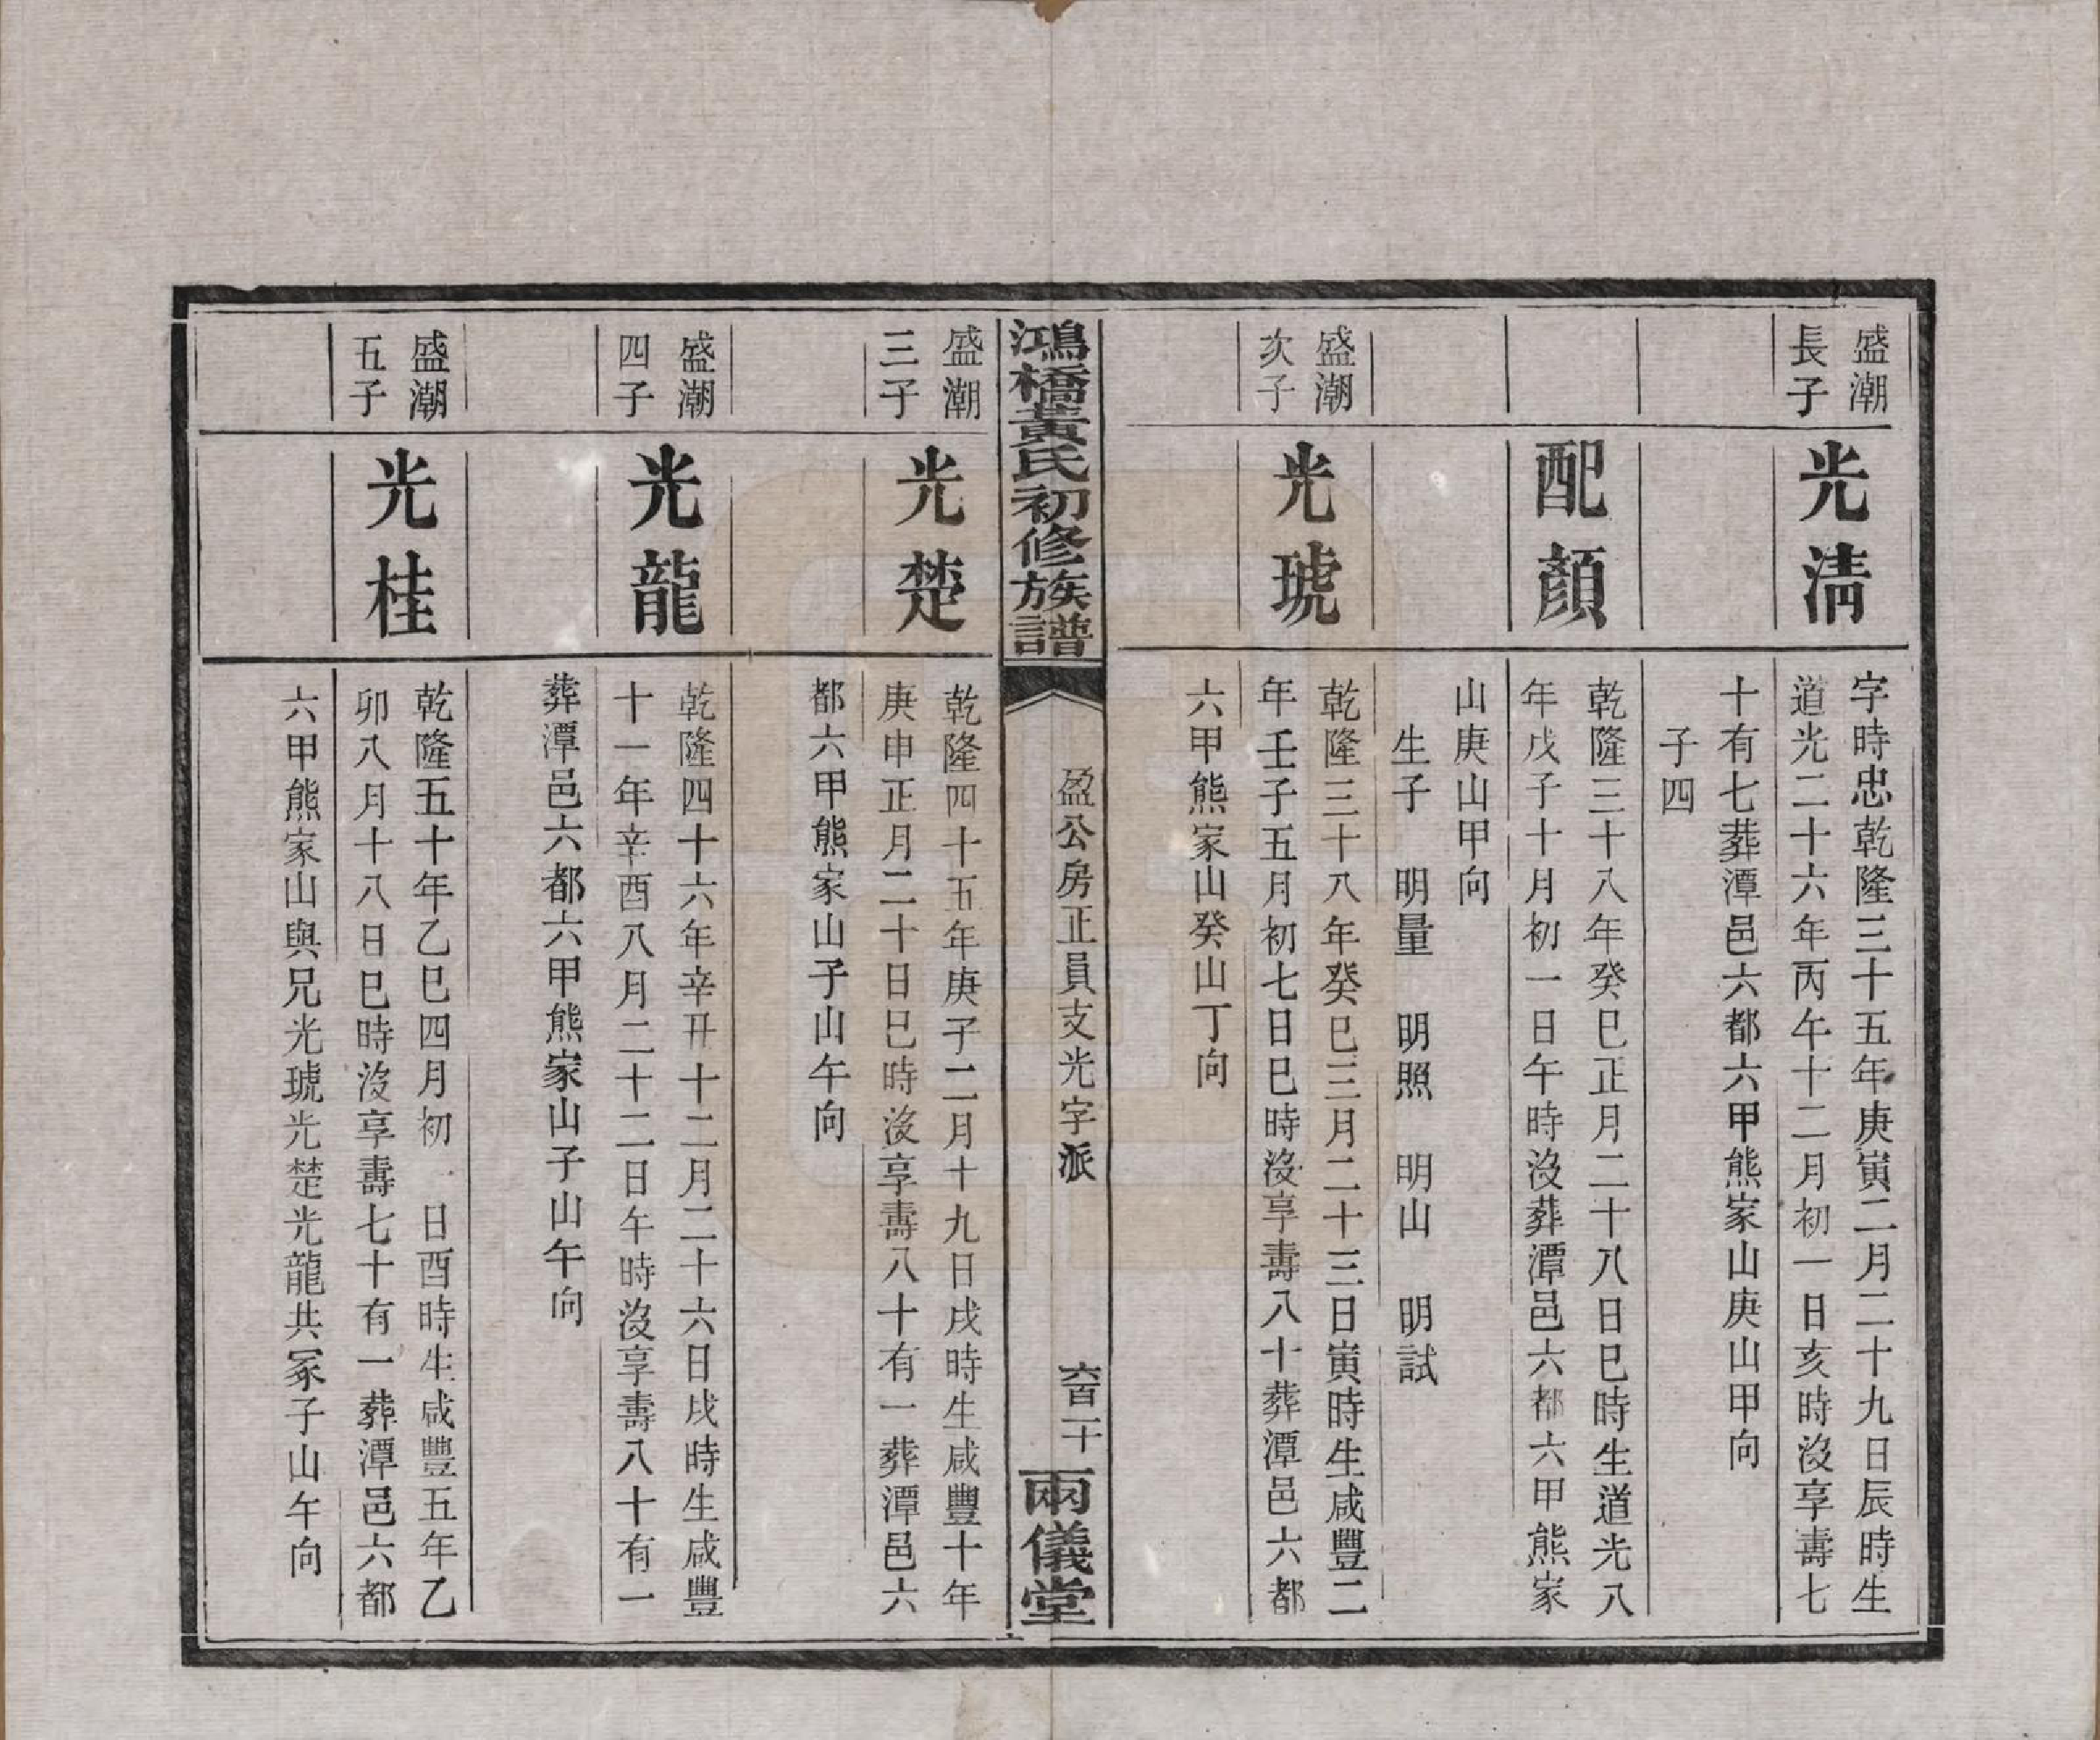 盛潮
長子
光淸
字時忠乾隆三十五年庚寅二月二十九日辰時生
道光二十六年丙午十二月初一日亥時沒享壽七
十有七葬潭邑六都六甲熊家山庚山甲向
子四
配顏
乾隆三十八年癸巳正月二十八日巳時生道光八
年戊子十月初一日午時沒葬潭邑六都六甲熊家
山庚山甲向
生子　明量　明照　明山　明試
盛潮
次子
光琥
乾隆三十八年癸巳三月二十三日寅時生咸豐二
年壬子五月初七日巳時沒享壽八十葬潭邑六都
六甲熊家山癸山丁向
鴻橋黃氏初修族譜
盈公房正員支光字派
六百二十
兩儀堂
盛潮
三子
光楚
乾隆四十五年庚子二月十九日戌時生咸豐十年
庚申正月二十日巳時沒享壽八十有一葬潭邑六
都六甲熊家山子山午向
盛潮
四子
光龍
乾隆四十六年辛丑十二月二十六日戌時生咸豐
十一年辛酉八月二十二日午時沒享壽八十有一
葬潭邑六都六甲熊家山子山午向
盛潮
五子
光桂
乾隆五十年乙巳四月初一日酉時生咸豐五年乙
卯八月十八日巳時沒享壽七十有一葬潭邑六都
六甲熊家山與兄光琥光楚光龍共冢子山午向